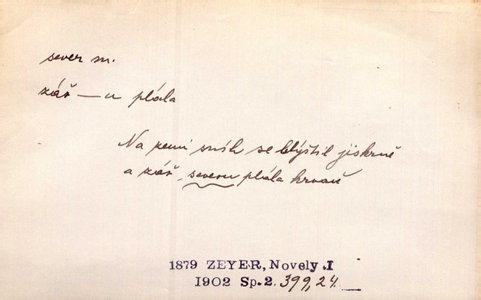 sever m.
zář — u plála
Na zemi sníh se blýštil jiskrně
a zář severu plála krvavě
1879 ZEYER, Novely I
1902 Sp. 2. 399,24.